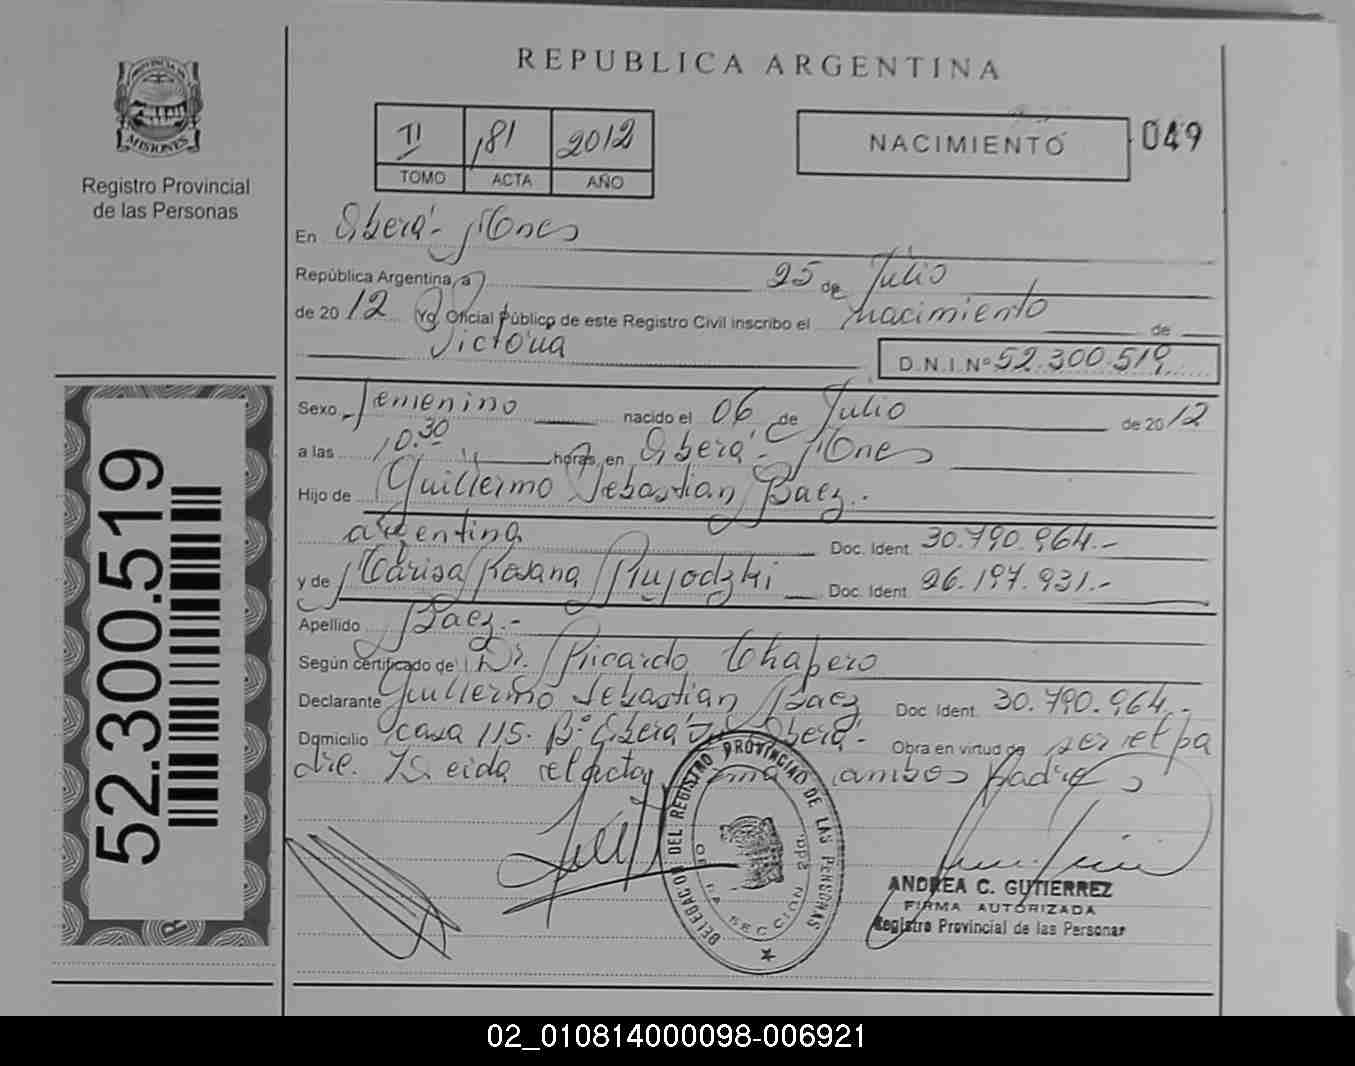 REPUBLICA ARGENTINA
PROVINCIA DE
MISIONES
Registro Provincial
de las Personas
II 181 2012
TOMO ACTA AÑO
NACIMIENTO
049
En Oberá - Mones
República Argentina, a 25 de Julio
de 2012 Yo Oficial Público de este Registro Civil inscribo el nacimiento de
Victoria D.N.I. Nº 52.300.519
Sexo Femenino nacido el 06 de Julio de 2012
a las 10.30 horas, en Oberá - Mones
Hijo de Guillermo Sebastian Baez.-
argentina Doc. Ident. 30.790.964.-
y de Marisa Rosana Prujodzki Doc. Ident. 26.197.931.-
Apellido Baez.-
Según certificado de Dr. Ricardo Chapero
Declarante Guillermo Sebastian Baez Doc. Ident. 30.790.964.-
Domicilio casa 115. Bº Oberá Oberá - Obra en virtud de ser el pa
dre. Leida el acta ambos padres
DELEGACION DEL REGISTRO PROVINCIAL DE LAS PERSONAS
SECCION
ANDREA C. GUTIERREZ
FIRMA AUTORIZADA
Registro Provincial de las Personas
52.300.519
R
02_010814000098-006921